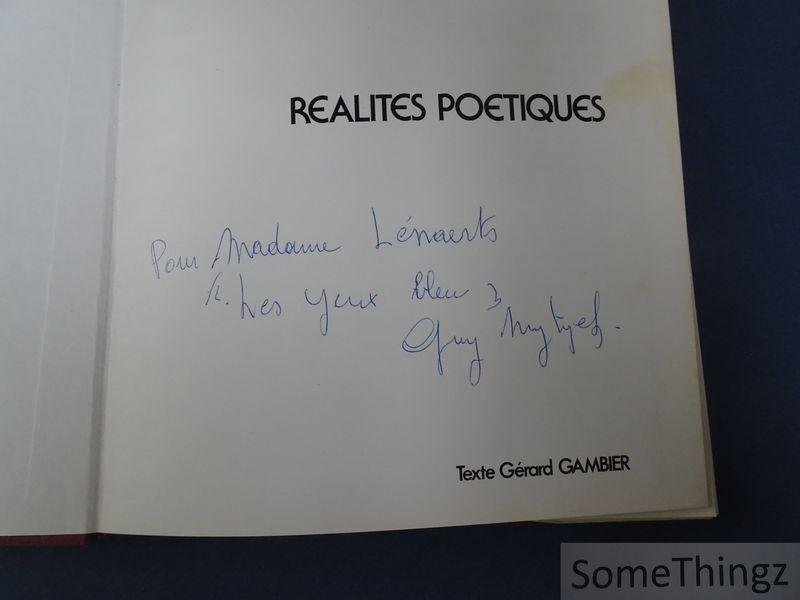 REALITES POETIQUES
Pour Madame Lénaerts
Les yeux bleu
Guy
Texte Gérard GAMBIER
SomeThingz